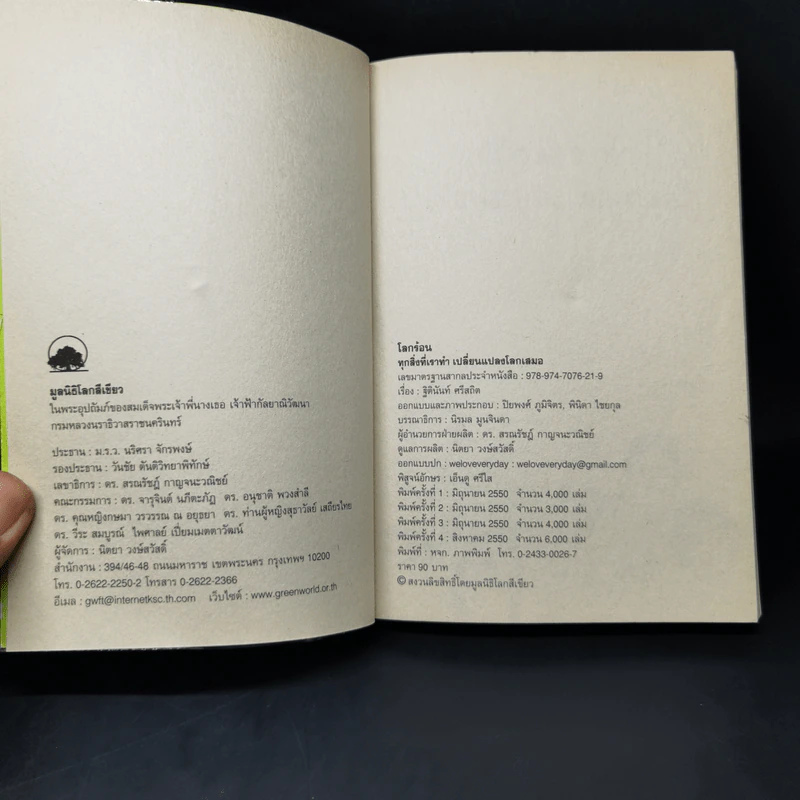 มูลนิธิโลกสีเขียว
ในพระอุปถัมภ์ของสมเด็จพระเจ้าพี่นางเธอ เจ้าฟ้ากัลยาณิวัฒนา
กรมหลวงนราธิวาสราชนครินทร์
ประธาน : ม.ร.ว. นริศรา จักรพงษ์
รองประธาน : วันชัย ตันติวิทยาพิทักษ์
เลขาธิการ : ดร. สรณรัชฎ์ กาญจนะวณิชย์
คณะกรรมการ : ดร. จารุจินต์ นภีตะภัฏ ดร. อนุชาติ พวงสำลี
ดร. คุณหญิงกษมา วรวรรณ ณ อยุธยา ดร. ท่านผู้หญิงสุธาวัลย์ เสถียรไทย
ดร. วีระ สมบูรณ์ ไพศาลย์ เปี่ยมเมตตาวัฒน์
ผู้จัดการ : นิตยา วงษ์สวัสดิ์
สำนักงาน : 394/46-48 ถนนมหาราช เขตพระนคร กรุงเทพฯ 10200
โทร. 0-2622-2250-2 โทรสาร 0-2622-2366
อีเมล : gwft@internetksc.th.com เว็บไซต์ : www.greenworld.or.th
โลกร้อน
ทุกสิ่งที่เราทำ เปลี่ยนแปลงโลกเสมอ
เลขมาตรฐานสากลประจำหนังสือ : 978-974-7076-21-9
เรื่อง : ฐิตินันท์ ศรีสถิต
ออกแบบและภาพประกอบ : ปิยพงศ์ ภูมิจิตร, พินิดา ไชยกุล
บรรณาธิการ : นิรมล มูนจินดา
ผู้อำนวยการฝ่ายผลิต : ดร. สรณรัชฎ์ กาญจนะวณิชย์
ดูแลการผลิต : นิตยา วงษ์สวัสดิ์
ออกแบบปก : weloveeveryday : weloveeveryday@gmail.com
พิสูจน์อักษร : เอ็นดู ศรีใส
พิมพ์ครั้งที่ 1 : มิถุนายน 2550 จำนวน 4,000 เล่ม
พิมพ์ครั้งที่ 2 : มิถุนายน 2550 จำนวน 3,000 เล่ม
พิมพ์ครั้งที่ 3 : มิถุนายน 2550 จำนวน 4,000 เล่ม
พิมพ์ครั้งที่ 4 : สิงหาคม 2550 จำนวน 6,000 เล่ม
พิมพ์ที่ : หจก. ภาพพิมพ์ โทร. 0-2433-0026-7
ราคา 90 บาท
© สงวนลิขสิทธิ์โดยมูลนิธิโลกสีเขียว